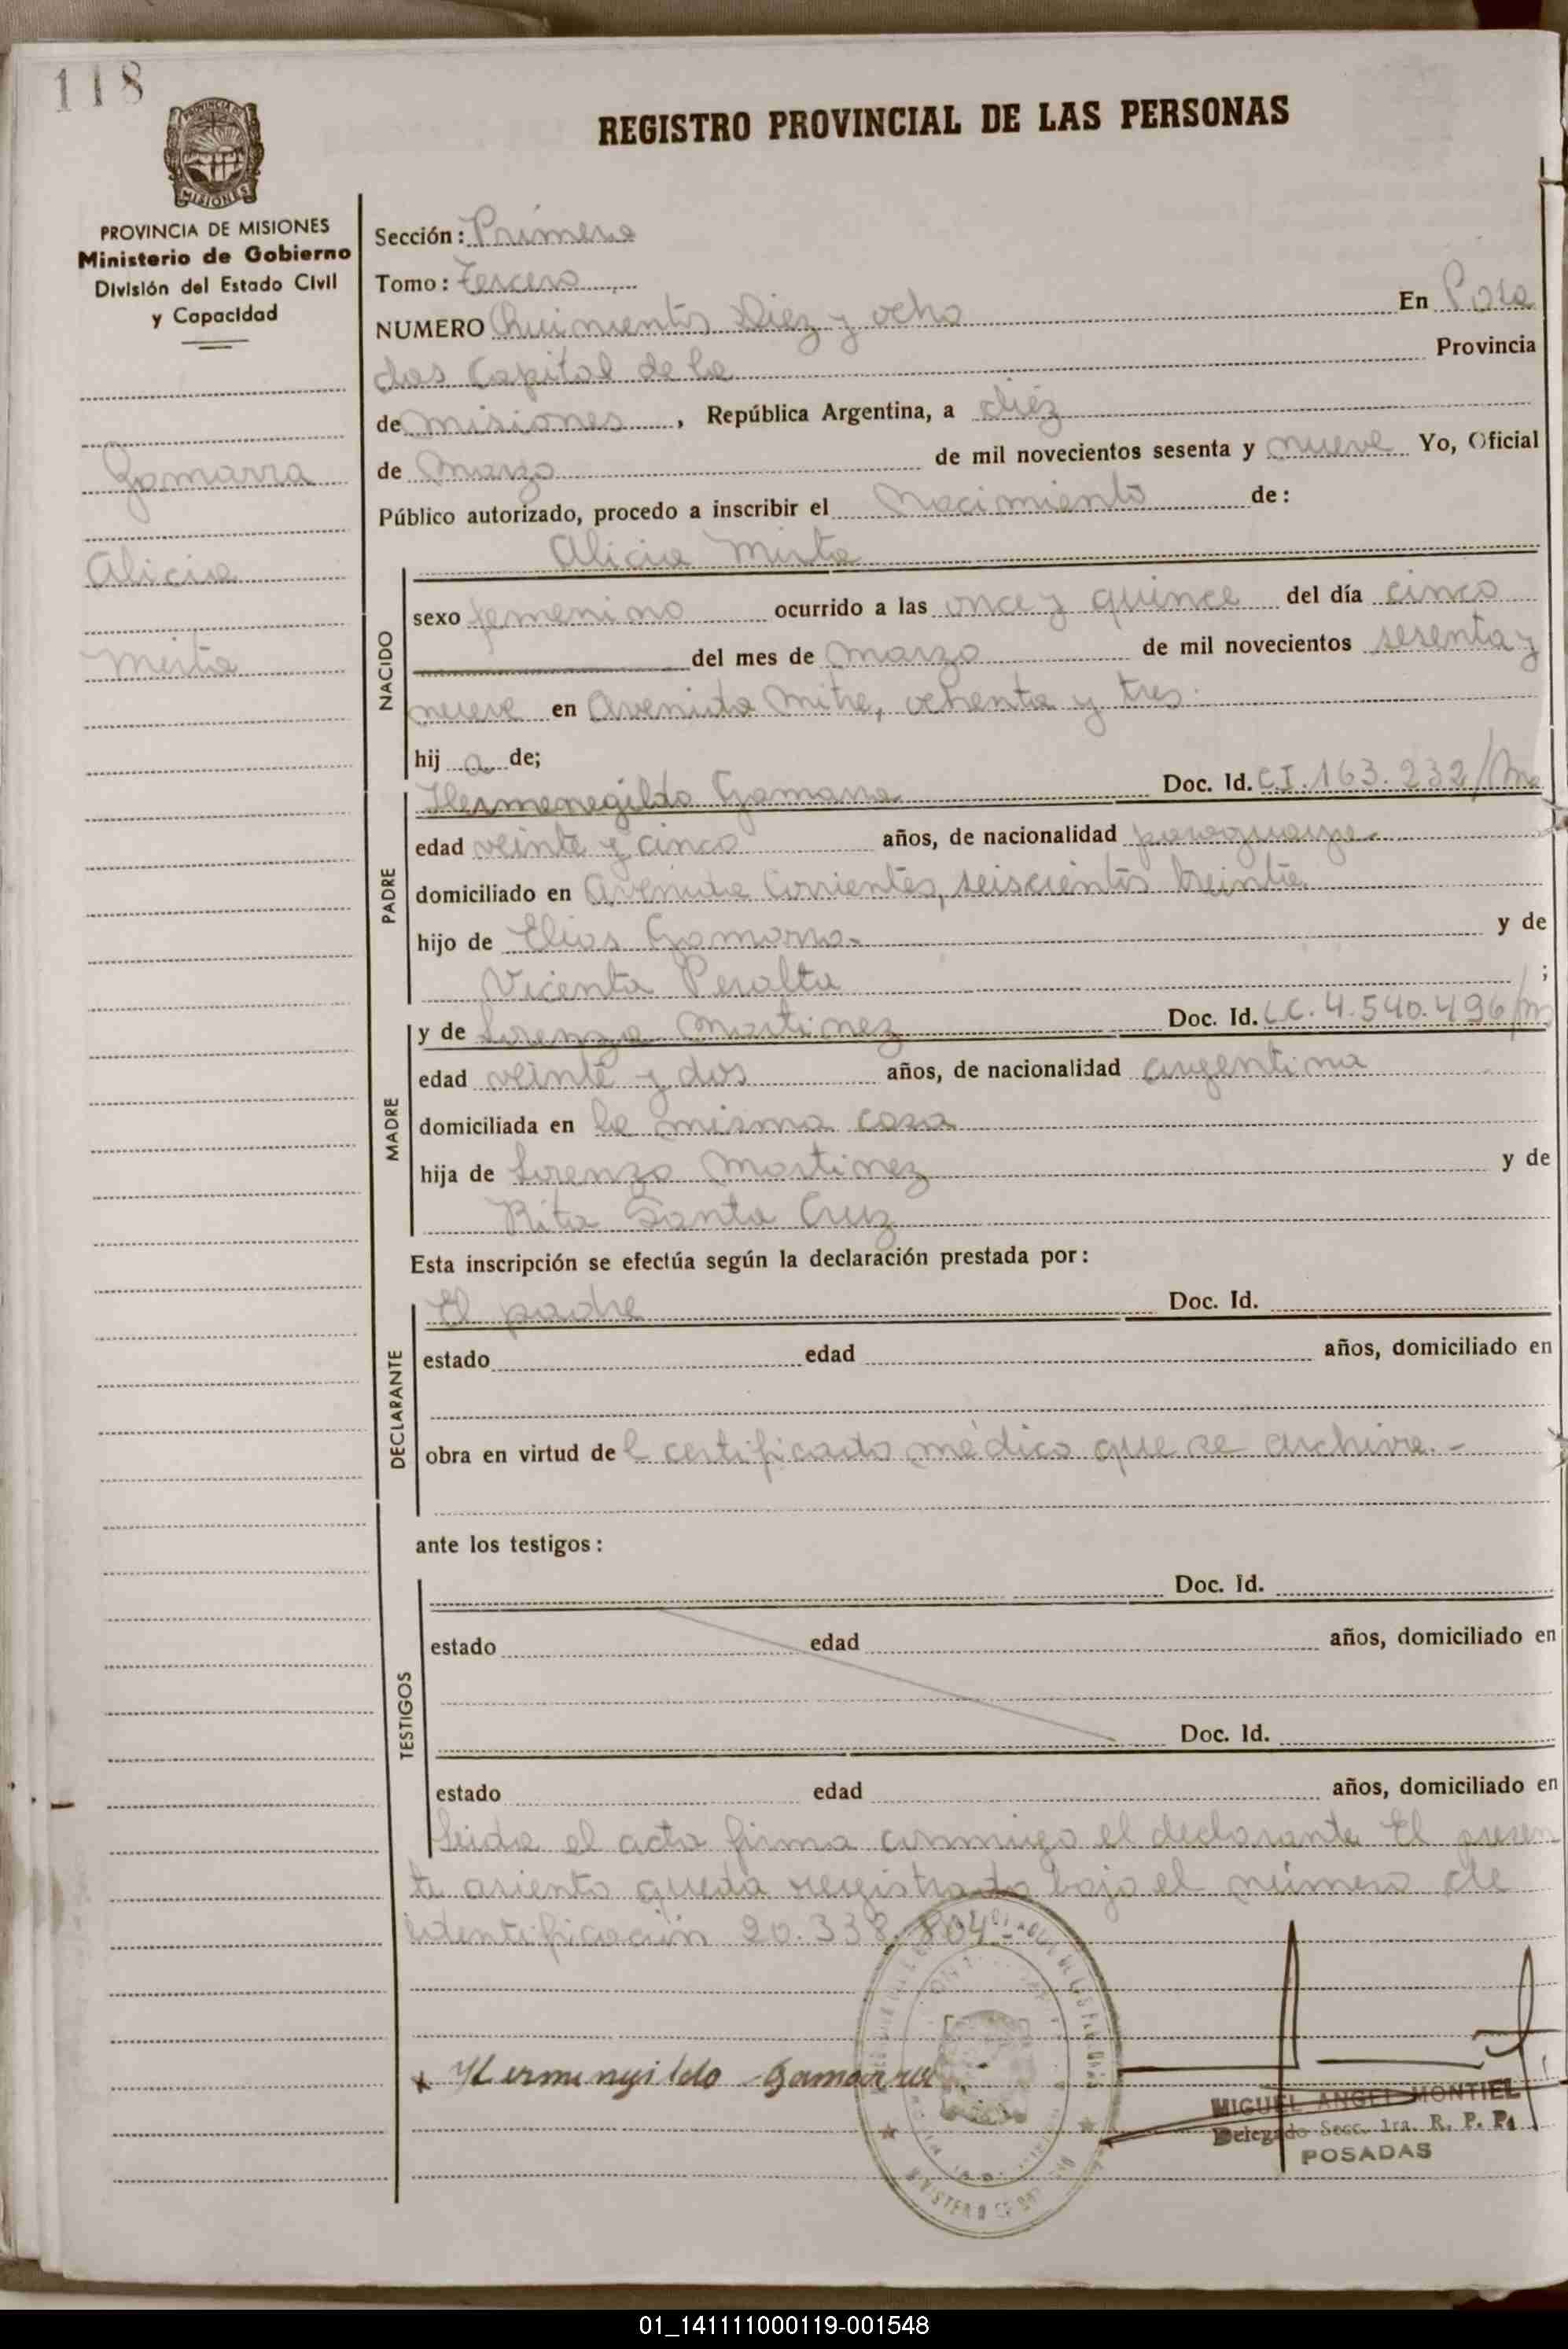 118
PROVINCIA DE
MISIONES
REGISTRO PROVINCIAL DE LAS PERSONAS
PROVINCIA DE MISIONES
Ministerio de Gobierno
División del Estado Civil
y Capacidad
Gamarra
Alicia
Mirta
Sección: Primera
Tomo: Tercero
NUMERO Quinientos Diez y ocho En Posa
das Capital de la Provincia
de Misiones, República Argentina, a diéz
de Marzo de mil novecientos sesenta y nueve Yo, Oficial
Público autorizado, procedo a inscribir el Nacimiento de:
Alicia Mirta
NACIDO
sexo femenino ocurrido a las once y quince del día cinco
del mes de marzo de mil novecientos sesenta y
nueve en Avenida Mitre, ochenta y tres.
hij a de;
PADRE
Hermenegildo Gamarra Doc. Id. C.I. 163.232/M
edad veinte y cinco años, de nacionalidad paraguaya
domiciliado en Avenida Corrientes, seiscientos treinta
hijo de Elias Gamarra y de
Vicenta Peralta ;
MADRE
y de Lorenza Martinez Doc. Id. L.C. 4.540.496/M
edad veinte y dos años, de nacionalidad argentina
domiciliada en la misma casa
hija de Lorenzo Martinez y de
Rita Santa Cruz
Esta inscripción se efectúa según la declaración prestada por:
DECLARANTE
El padre Doc. Id.
estado edad años, domiciliado en
obra en virtud de l certificado médico que se archiva.-
ante los testigos:
TESTIGOS
Doc. Id.
estado edad años, domiciliado en
Doc. Id.
estado edad años, domiciliado en
Leida el acta firma conmigo el declarante El presen
te asiento queda registrado bajo el número de
identificación 20.338.804.-
x Hermenegildo Gamarra
MIGUEL ANGEL MONTIEL
Delegado Secc. 1ra. R. P. P.
POSADAS
01_141111000119-001548